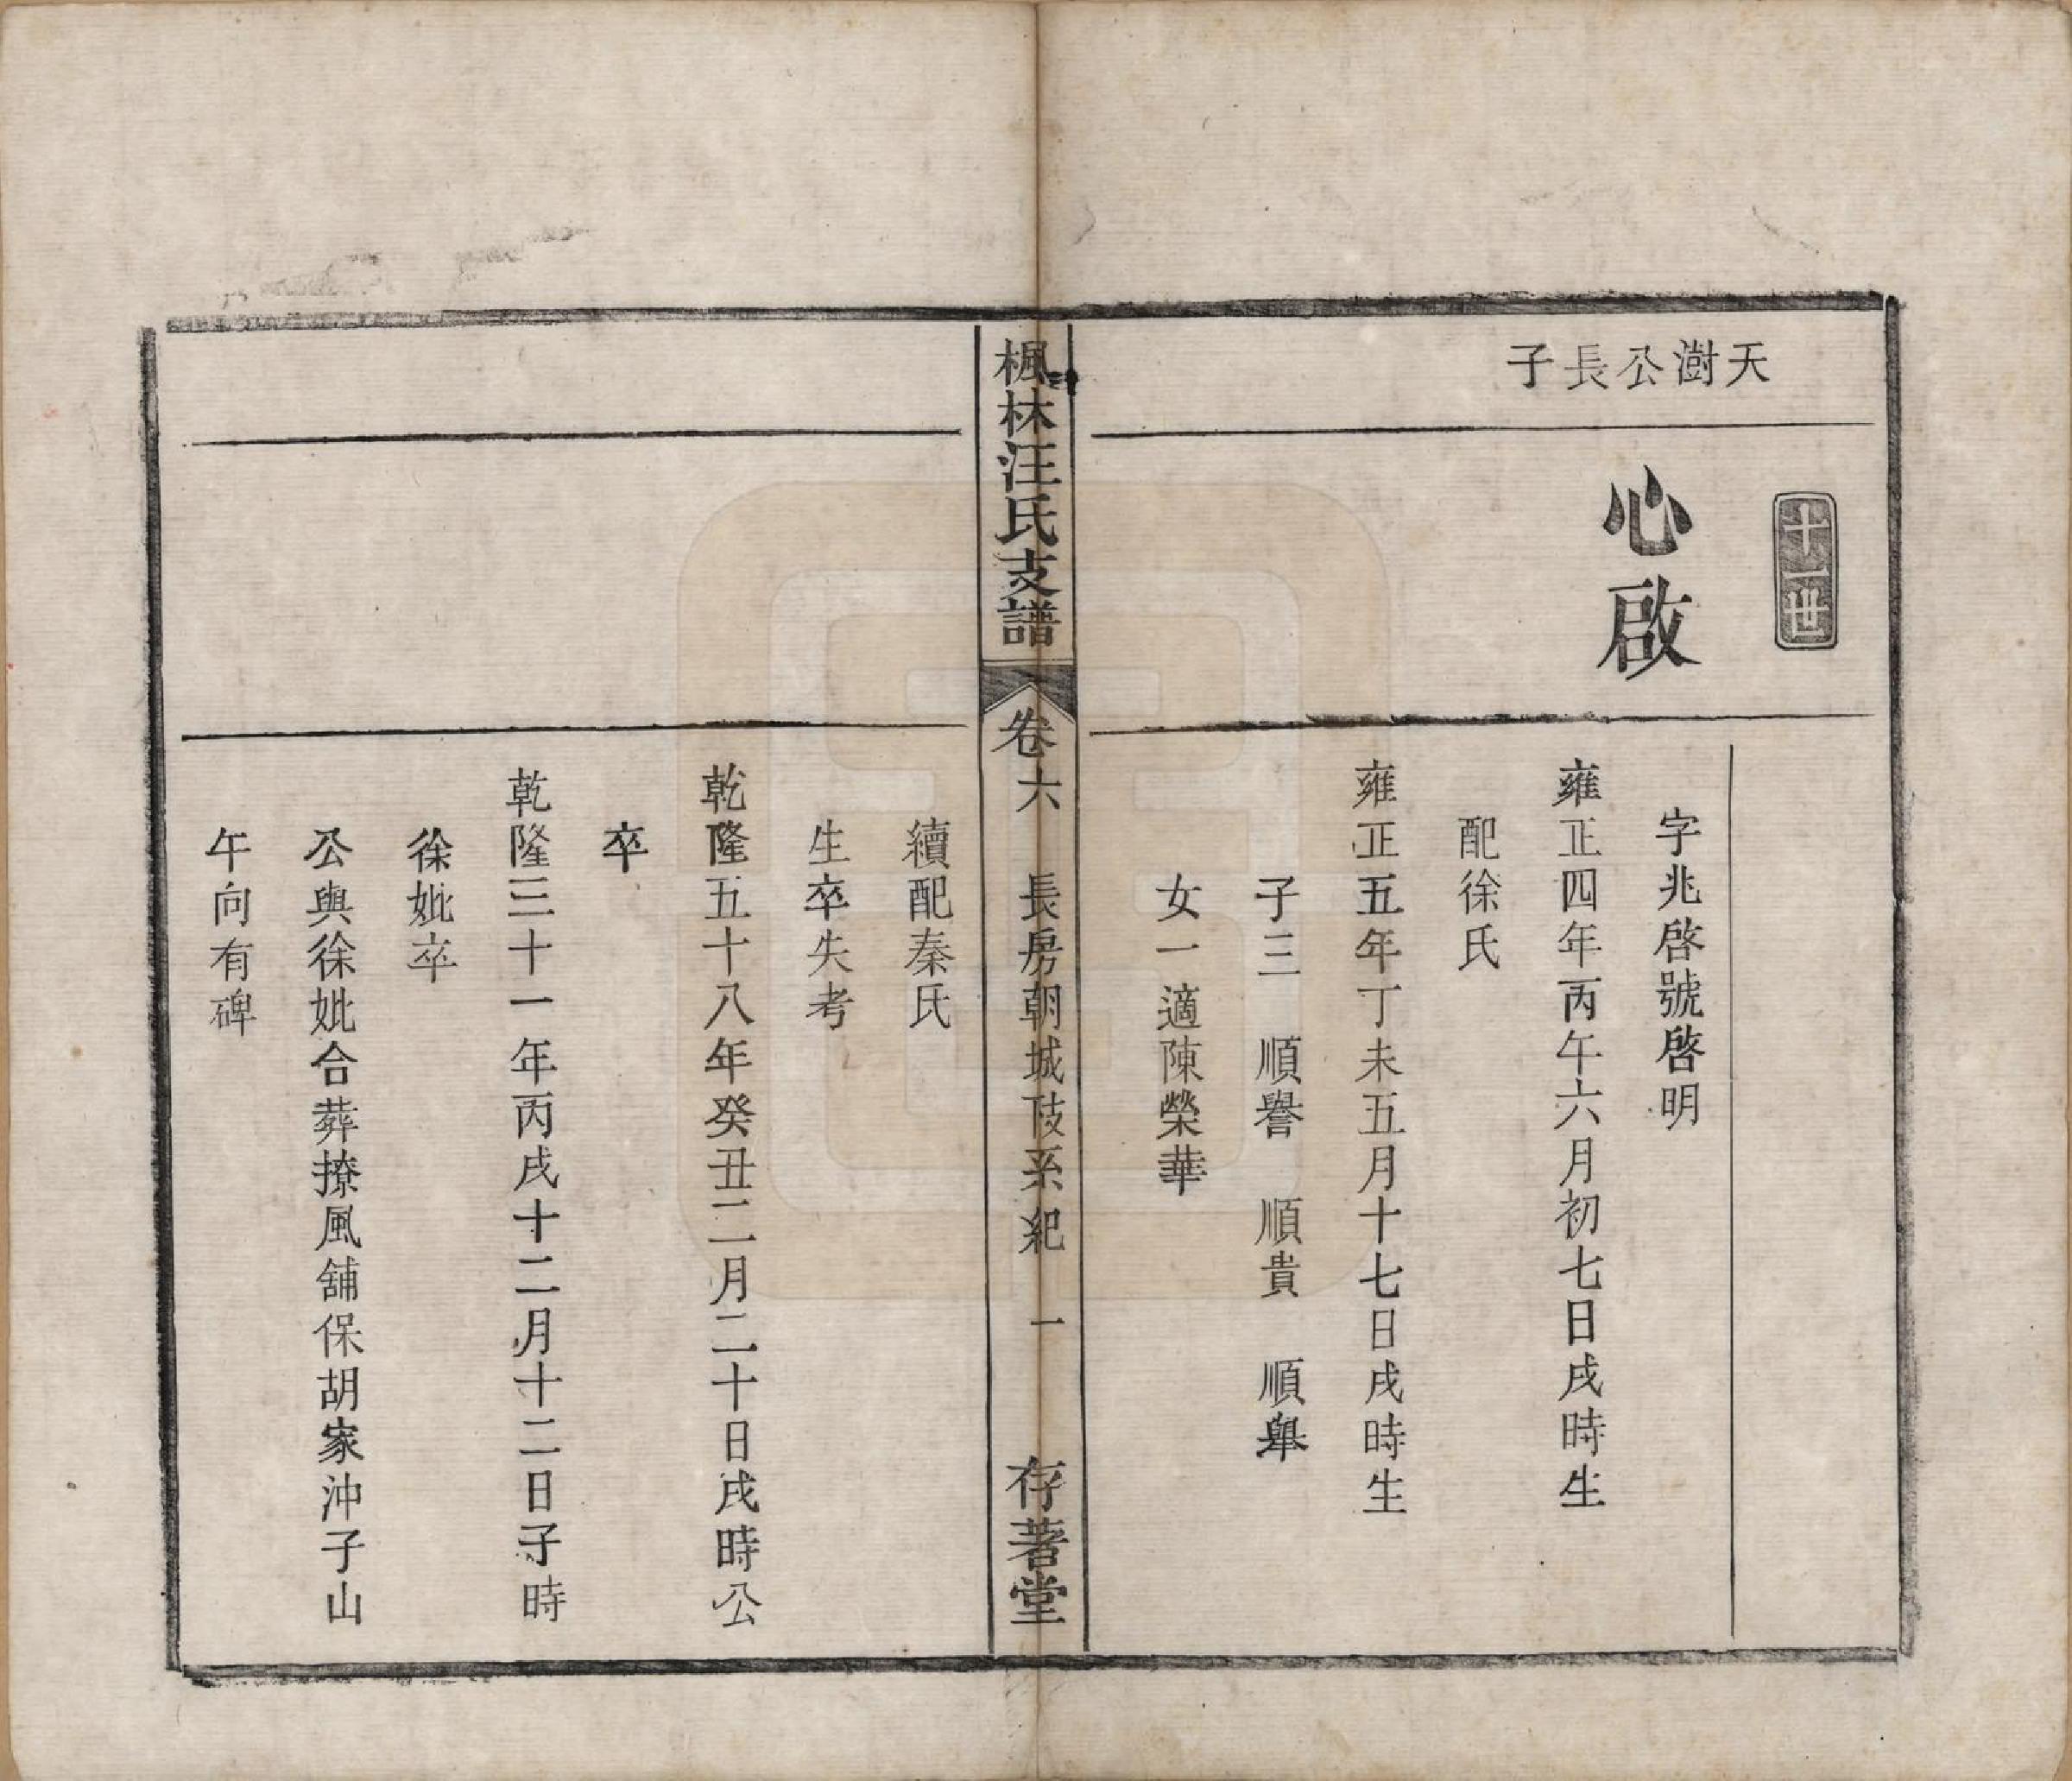 十一世
天澍公長子
心啟
字兆啓號啓明
雍正四年丙午六月初七日戌時生
配徐氏
雍正五年丁未五月十七日戌時生
子三　順譽　順貴　順舉
女一適陳榮華
楓林汪氏支譜　卷六　長房朝城伎系紀　一　存著堂
續配秦氏
生卒失考
乾隆五十八年癸丑二月二十日戌時公
卒
乾隆三十一年丙戌十二月十二日子時
徐妣卒
公與徐妣合葬撩風舖保胡家沖子山
午向有碑